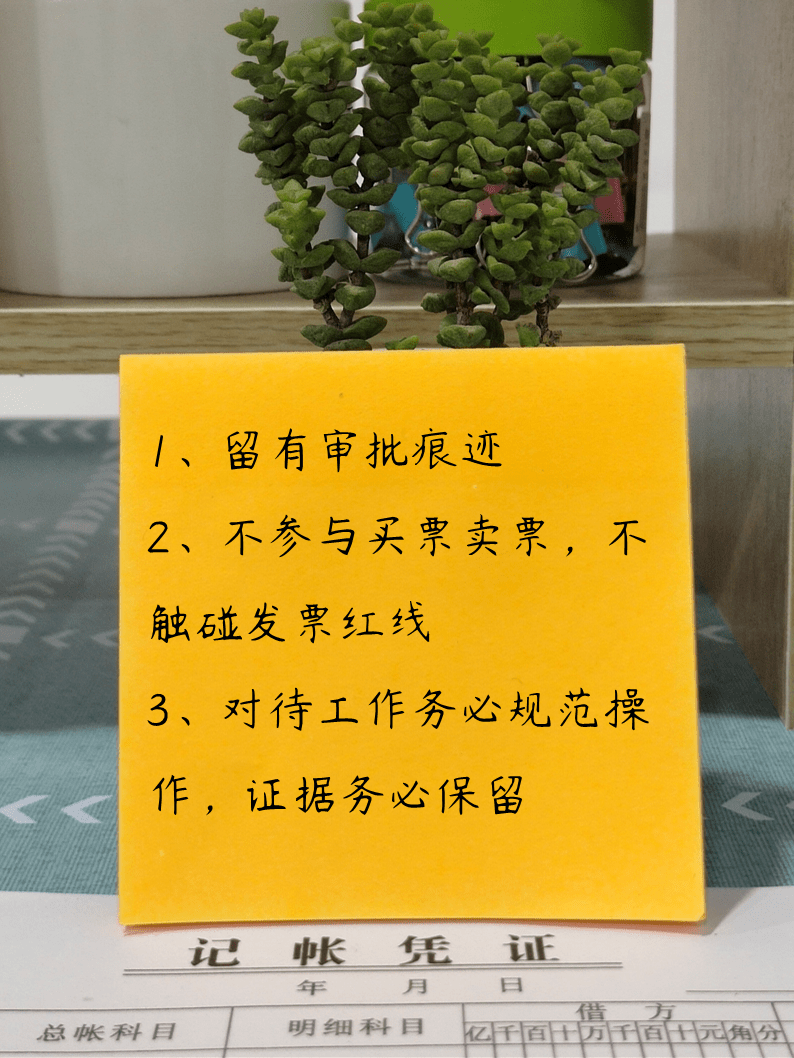 1、留有审批痕迹
2、不参与买票卖票，不
触碰发票红线
3、对待工作务必规范操
作，证据务必保留
记帐凭证
年 月 日
总帐科目 明细科目 借方
亿千百十万千百十元角分